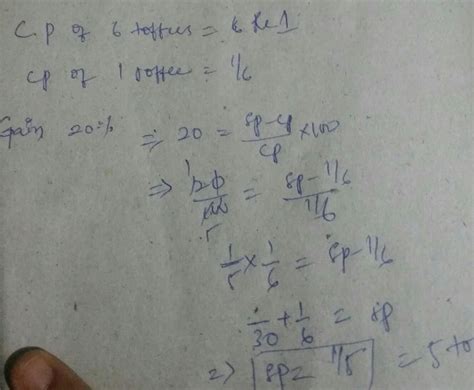 C.P of 6 toffees = Re 1
CP of 1 toffee = 1/6
Gain 20% ⇒ 20 = (SP-CP)/CP × 100
⇒ 20/100 = (SP - 1/6)/(1/6)
1/5 × 1/6 = SP - 1/6
1/30 + 1/6 = SP
⇒ SP = 1/5 = 5 to